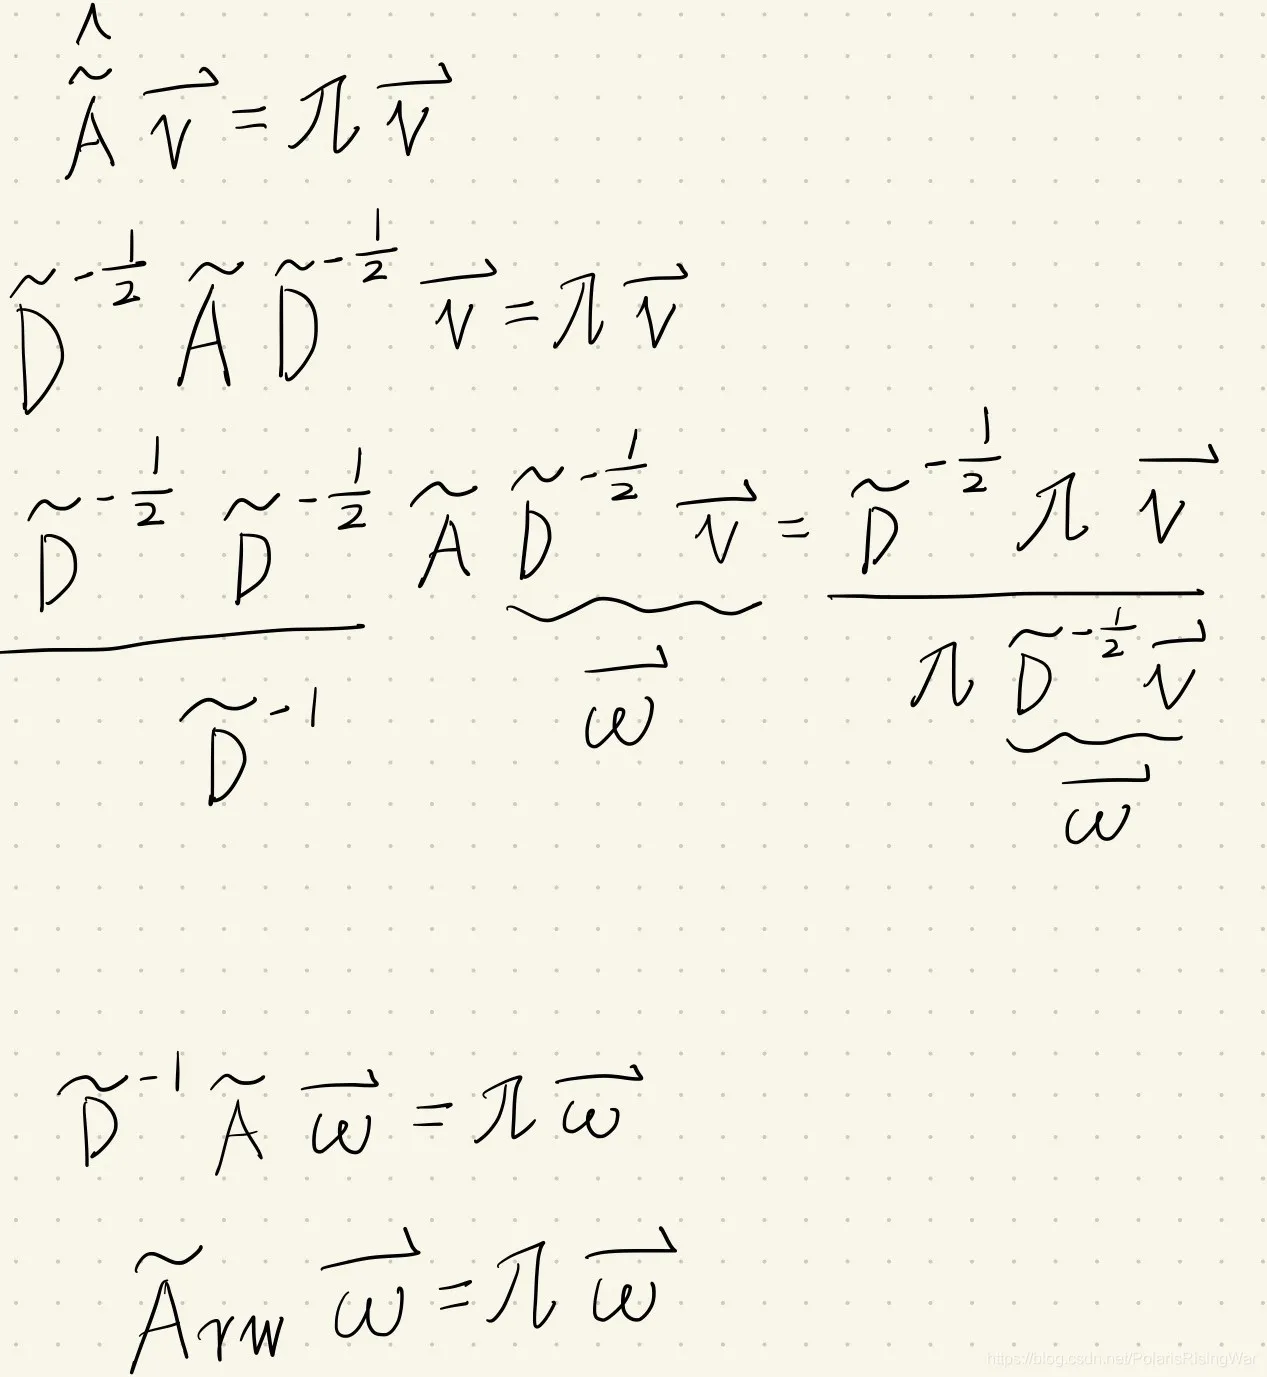 $\hat{\tilde{A}} \vec{v} = \pi \vec{v}$
$\tilde{D}^{-\frac{1}{2}} \tilde{A} \tilde{D}^{-\frac{1}{2}} \vec{v} = \pi \vec{v}$
$\tilde{D}^{-\frac{1}{2}} \tilde{D}^{-\frac{1}{2}} \tilde{A} \tilde{D}^{-\frac{1}{2}} \vec{v} = \tilde{D}^{-\frac{1}{2}} \pi \vec{v}$
$\tilde{D}^{-1}$ $\vec{\omega}$ $\pi \tilde{D}^{-\frac{1}{2}} \vec{v}$
$\vec{\omega}$
$\tilde{D}^{-1} \tilde{A} \vec{\omega} = \pi \vec{\omega}$
$\tilde{A}_{rw} \vec{\omega} = \pi \vec{\omega}$
https://blog.csdn.net/PolarisRisingWar